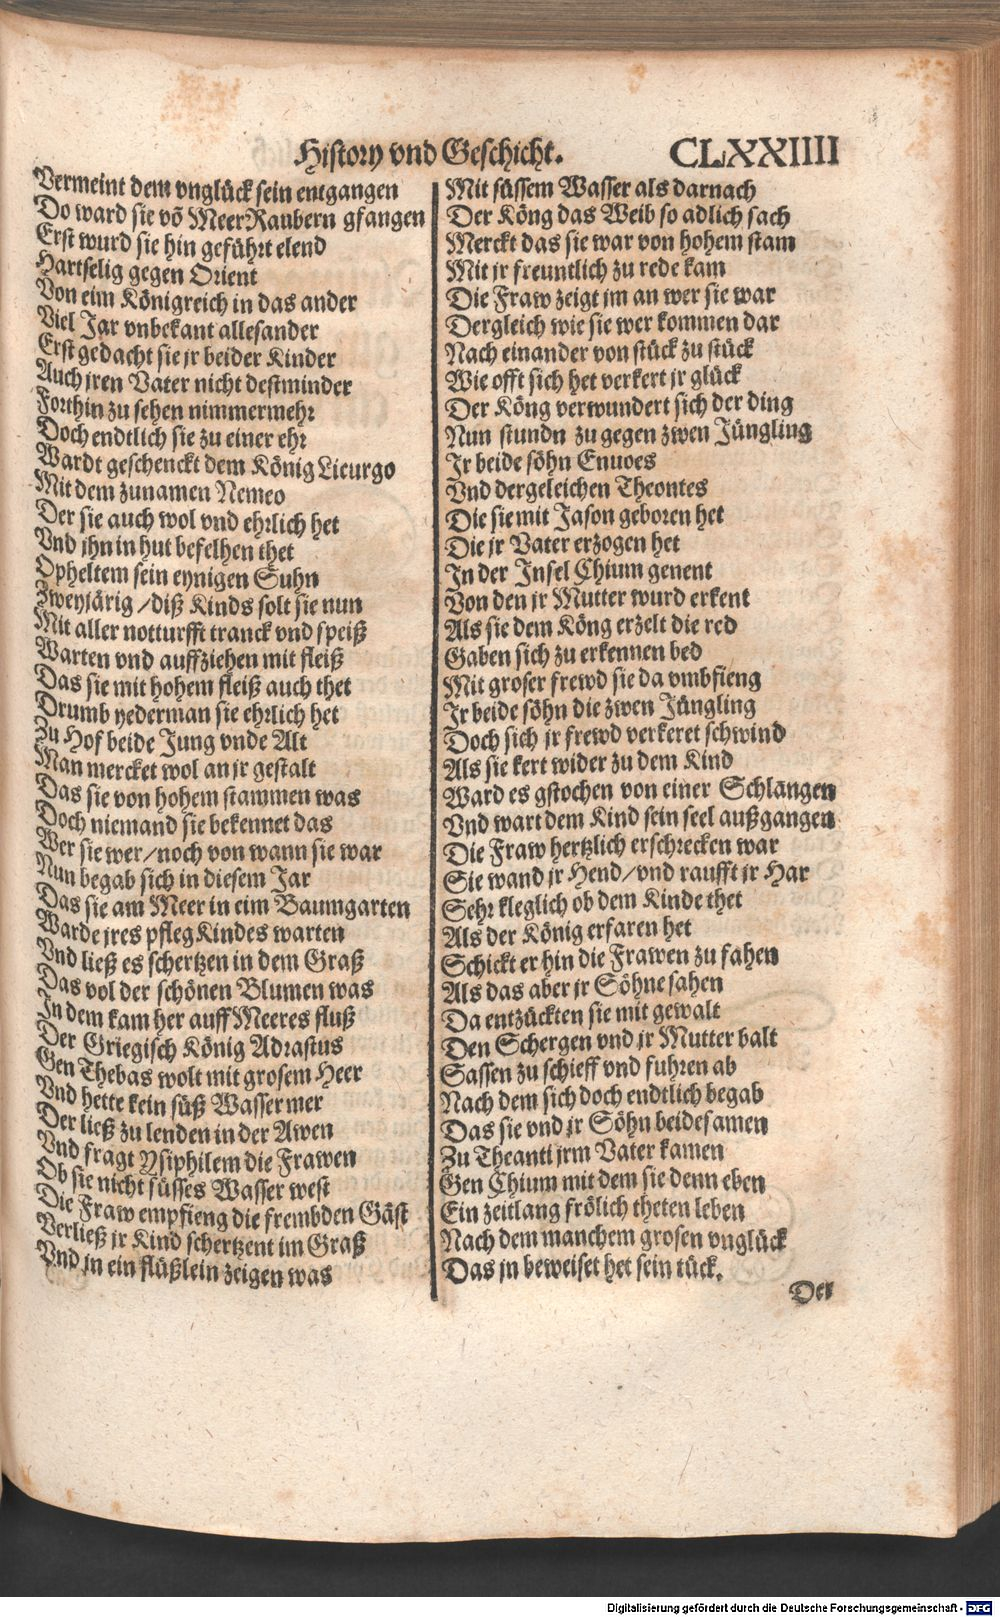 History vnd Geschicht.
CLXXIIII
Vermeint dem vnglück sein entgangen
Do ward sie võ MeerRaubern gfangen
Erst wurd sie hin geführt elend
Hartselig gegen Orient
Von eim Königreich in das ander
Viel Jar vnbekant allesander
Erst gedacht sie jr beider Kinder
Auch jren Vater nicht destminder
Forthin zu sehen nimmermehr
Doch endtlich sie zu einer ehr
Wardt geschenckt dem König Licurgo
Mit dem zunamen Nemeo
Der sie auch wol vnd ehrlich het
Vnd jhn in hut befelhen thet
Opheltem sein eynigen Suhn
Zweyjärig /diß Kinds solt sie nun
Mit aller notturfft tranck vnd speiß
Warten vnd auffziehen mit fleiß
Das sie mit hohem fleiß auch thet
Drumb yederman sie ehrlich het
Zu Hof beide Jung vnde Alt
Man mercket wol an jr gestalt
Das sie von hohem stammen was
Doch niemand sie bekennet das
Wer sie wer/noch von wann sie war
Nun begab sich in diesem Jar
Das sie am Meer in eim Baumgarten
Warde jres pflegKindes warten
Vnd ließ es schertzen in dem Graß
Das vol der schönen Blumen was
In dem kam her auff Meeres fluß
Der Griegisch König Adrastus
Gen Thebas wolt mit grosem Heer
Vnd hette kein süß Wasser mer
Der ließ zu lenden in der Awen
Vnd fragt Ysiphilem die Frawen
Ob sie nicht süsses Wasser west
Die Fraw empfieng die frembden Gäst
Verließ jr Kind schertzent im Graß
Vnd jn ein flüßlein zeigen was
Mit süssem Wasser als darnach
Der Köng das Weib so adlich sach
Merckt das sie war von hohem stam
Mit jr freuntlich zu rede kam
Die Fraw zeigt jm an wer sie war
Dergleich wie sie wer kommen dar
Nach einander von stück zu stück
Wie offt sich het verkert jr glück
Der Köng verwundert sich der ding
Nun stundn zu gegen zwen Jüngling
Jr beide söhn Enuoes
Vnd dergeleichen Theontes
Die sie mit Jason geboren het
Die jr Vater erzogen het
In der Insel Chium genent
Von den jr Mutter wurd erkent
Als sie dem Köng erzelt die red
Gaben sich zu erkennen bed
Mit groser frewd sie da vmbfieng
Jr beide söhn die zwen Jüngling
Doch sich jr frewd verkeret schwind
Als sie kert wider zu dem Kind
Ward es gstochen von einer Schlangen
Vnd wart dem Kind sein seel außgangen
Die Fraw hertzlich erschrecken war
Sie wand jr Hend/vnd raufft jr Har
Sehr kleglich ob dem Kinde thet
Als der König erfaren het
Schickt er hin die Frawen zu fahen
Als das aber jr Söhne sahen
Da entzückten sie mit gewalt
Den Schergen vnd jr Mutter balt
Sassen zu schieff vnd fuhren ab
Nach dem sich doch endtlich begab
Das sie vnd jr Söhn beidesamen
Zu Theanti jrm Vater kamen
Gen Chium mit dem sie denn eben
Ein zeitlang frölich theten leben
Nach dem manchem grosen vnglück
Das jn beweiset het sein tück.
Der
Digitalisierung gefördert durch die Deutsche Forschungsgemeinschaft - DFG